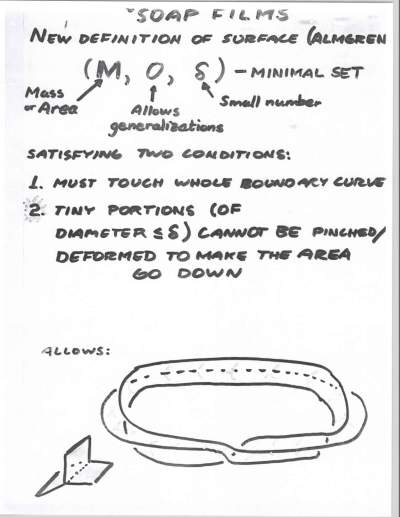 "SOAP FILMS
NEW DEFINITION OF SURFACE (ALMGREN
(M, O, δ) - MINIMAL SET
Mass or Area
Allows generalizations
Small number
SATISFYING TWO CONDITIONS:
1. MUST TOUCH WHOLE BOUNDARY CURVE
2. TINY PORTIONS (OF
DIAMETER ≤ δ) CANNOT BE PINCHED/
DEFORMED TO MAKE THE AREA
GO DOWN
ALLOWS: